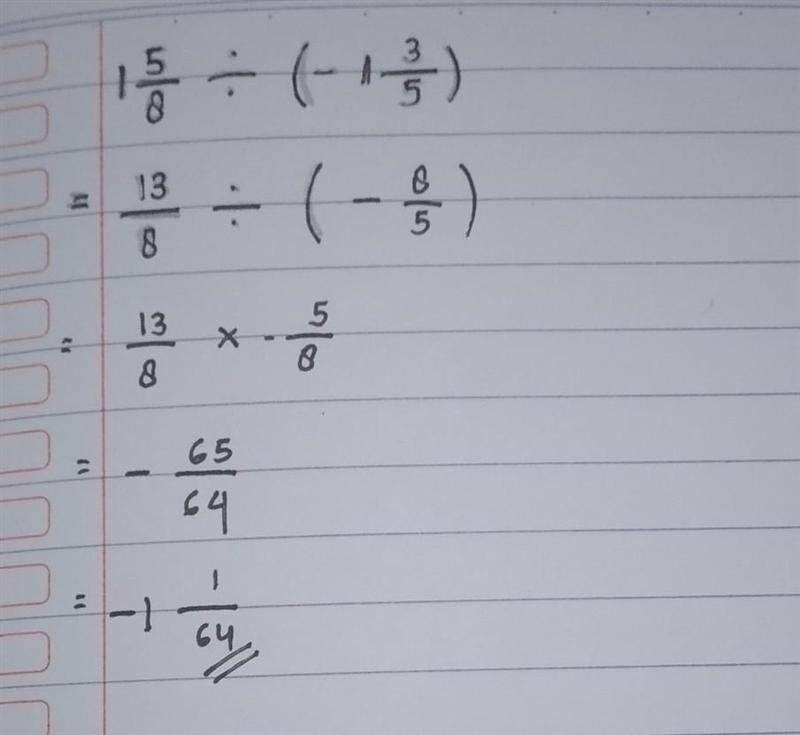 1 5/8 ÷ (- 1 3/5)
= 13/8 ÷ (- 8/5)
= 13/8 × - 5/8
= - 65/64
= -1 1/64